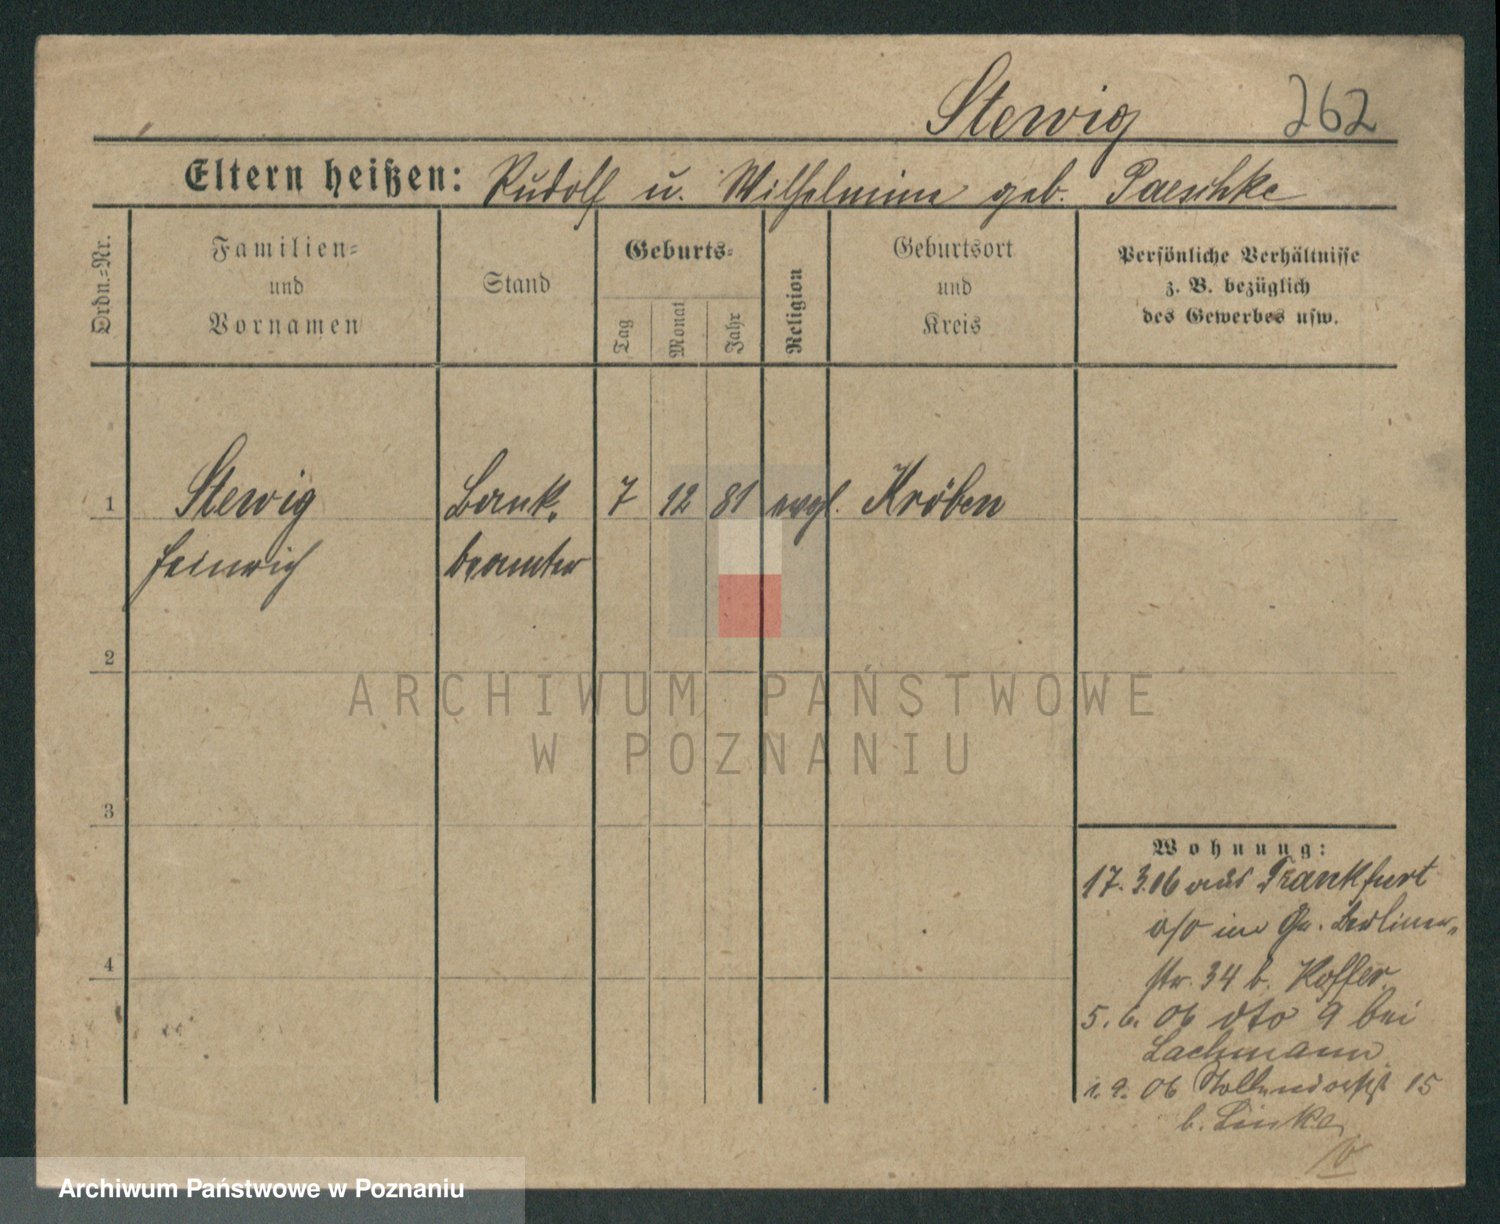 Stewig 262
Eltern heißen: Rudolf u. Wilhelmine geb. Paeschke
Ordn.=Nr.
Familien=
und
Vornamen
Stand
Geburts=
Tag
Monat
Jahr
Religion
Geburtsort
und
Kreis
Persönliche Verhältnisse
z. B. bezüglich
des Gewerbes usw.
1 Stewig Bank. 7 12 81 evgl. Kröben
Heinrich beamter
2
ARCHIWUM PAŃSTWOWE
W POZNANIU
3
4
Wohnung:
17. 3. 06 aus Frankfurt
a/O in Berliner
str. 34 b. Koffer.
5. 6. 06 dto 9 bei
Lachmann
1. 9. 06 15
b. Linke
Archiwum Państwowe w Poznaniu